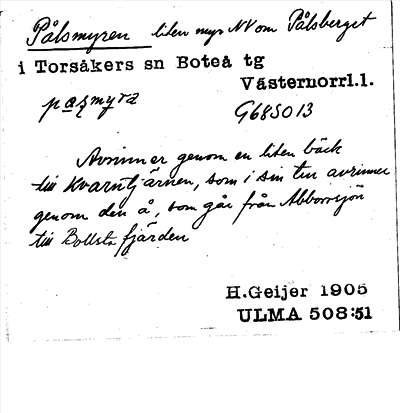 Pålsmyren liten myr NV om Pålsberget
i Torsåkers sn Boteå tg
Västernorrl.l.
G68S013
Avrinner genom en liten bäck
till Kvarntjärnen, som i sin tur avrinner
genom den å, som går från Abborrsjön
till Bollstafjärden
H.Geijer 1905
ULMA 508:51